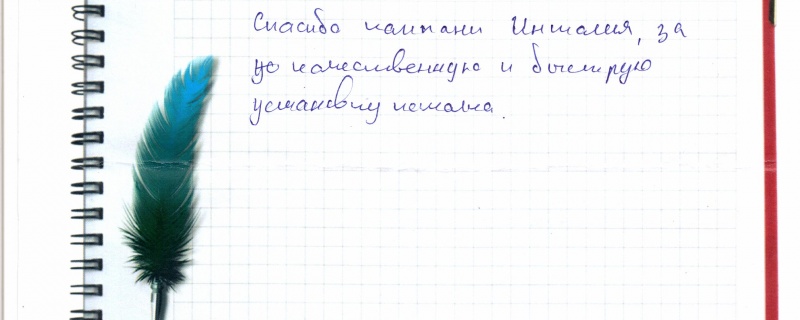 Спасибо компани Инталия, за
качественную и быструю
установку потолка.